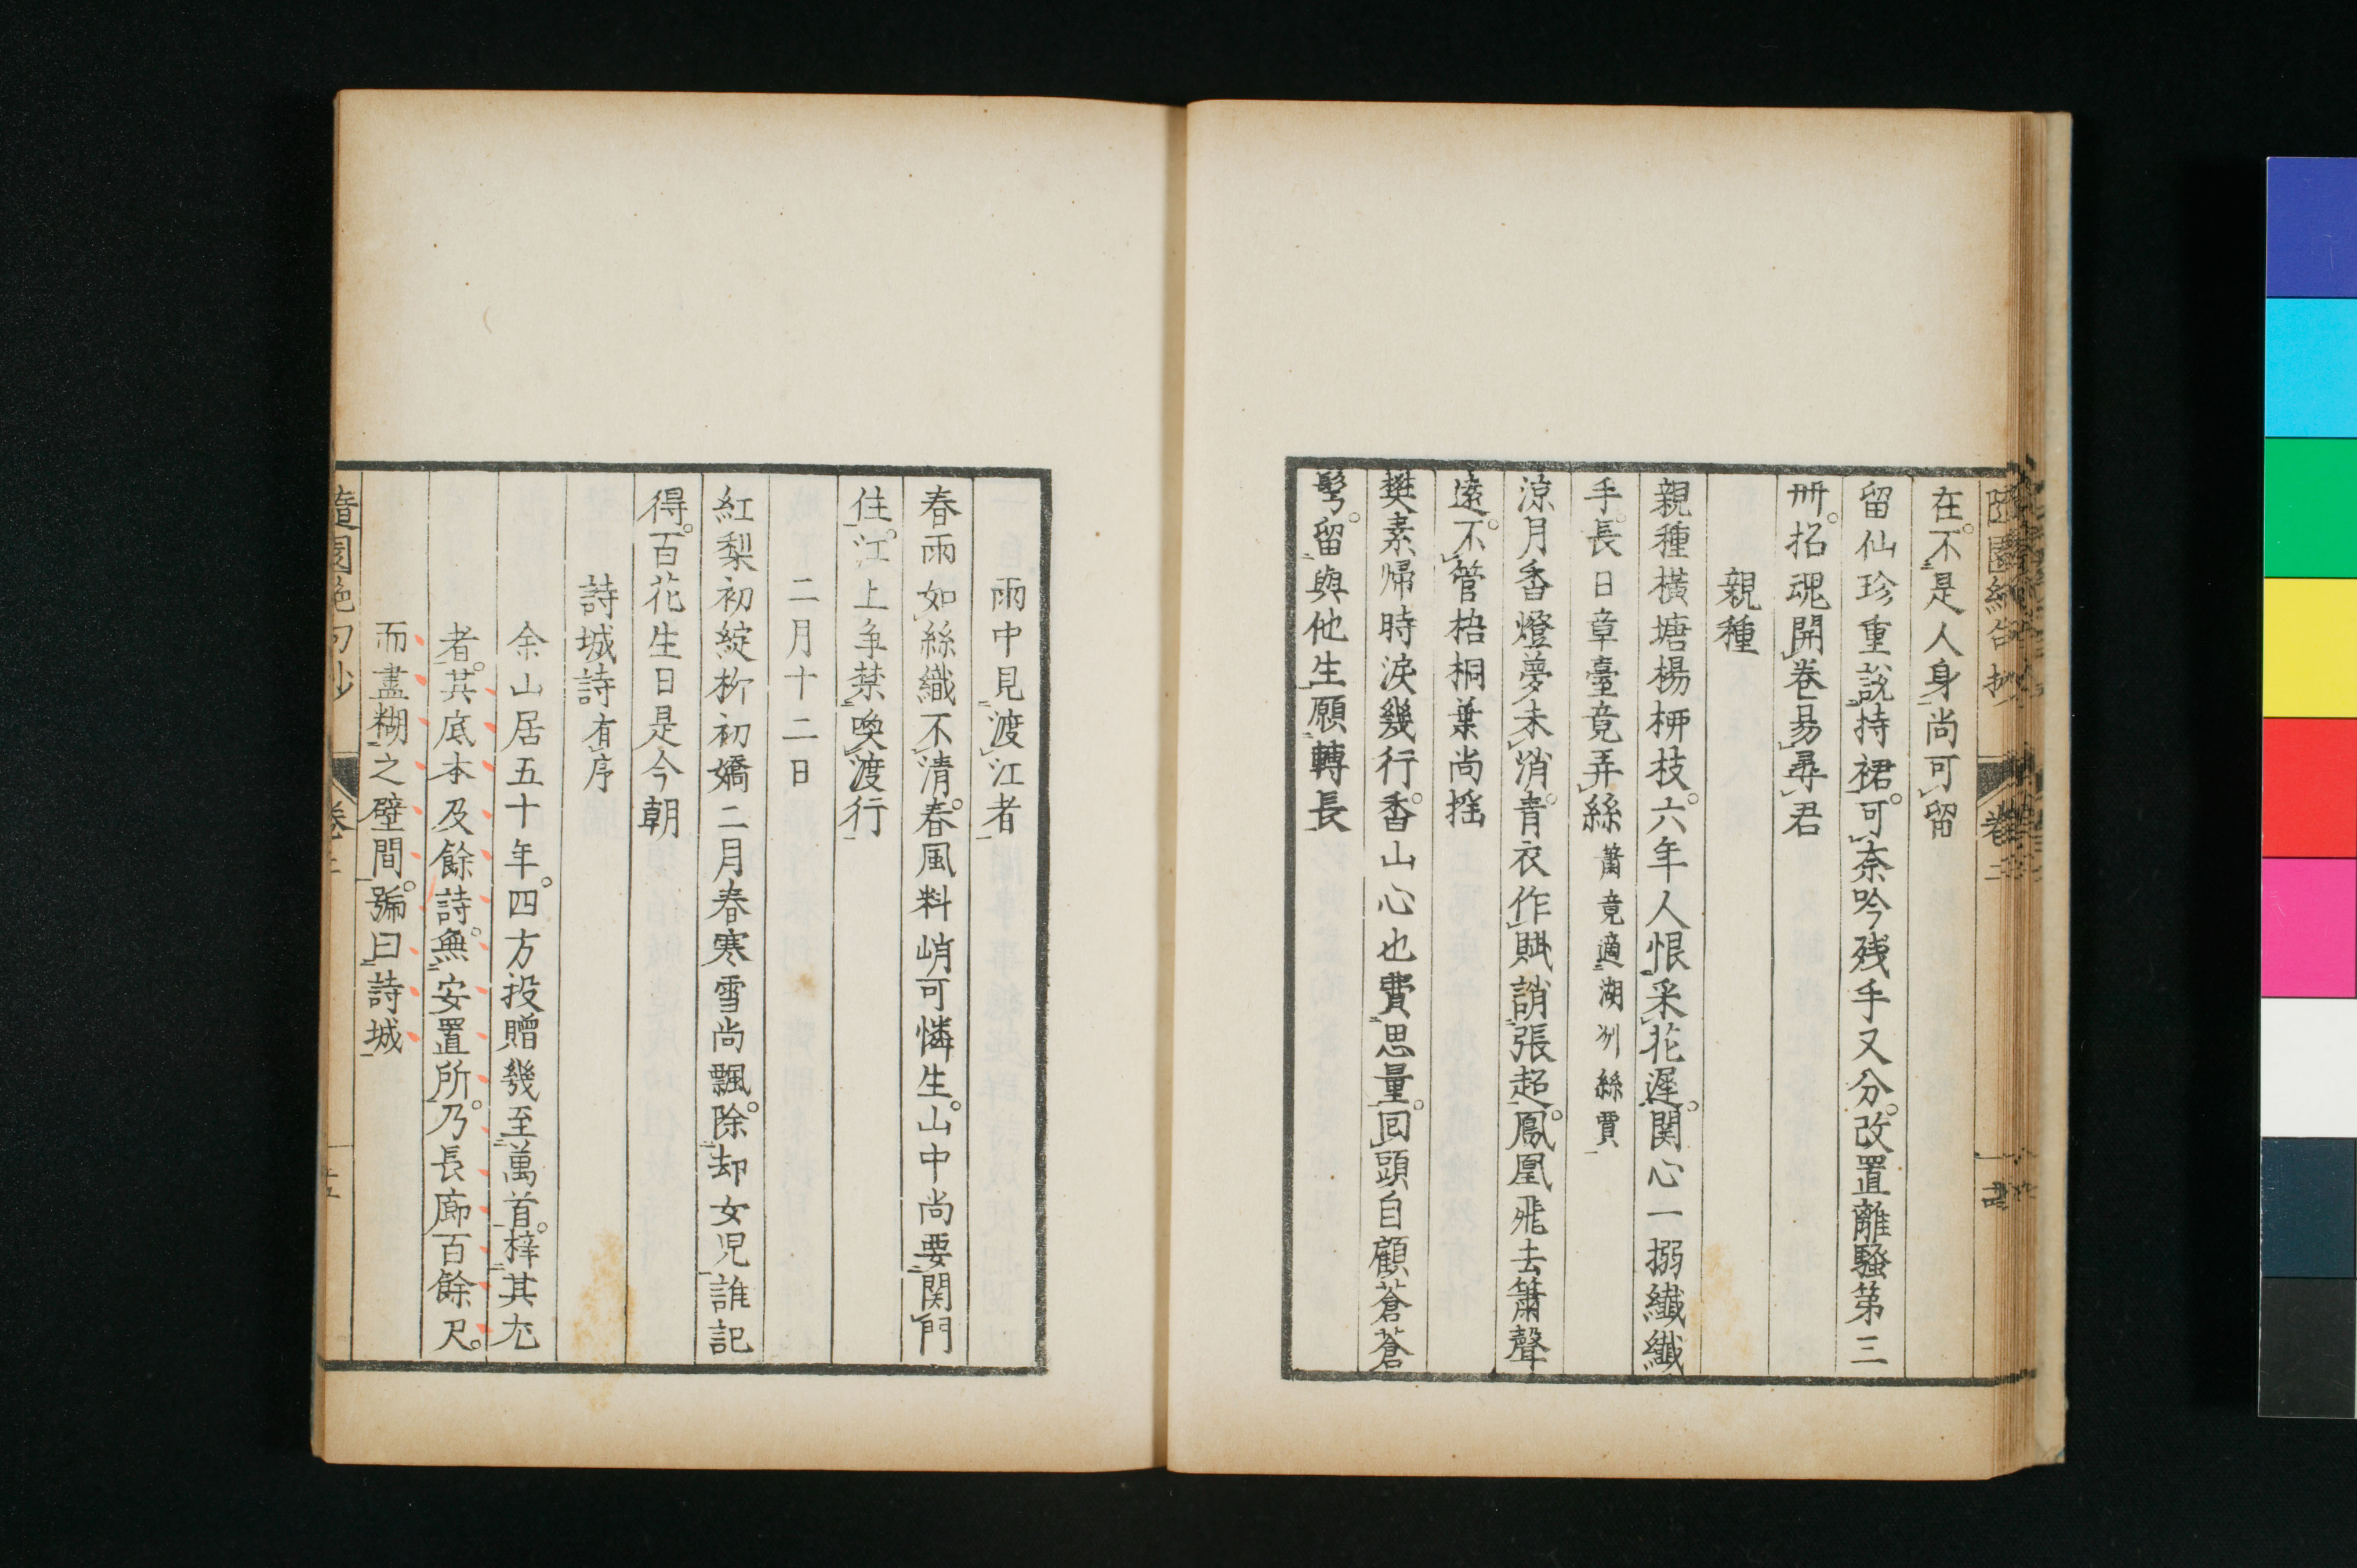 在。不是人身尚可留
留仙珍重說持裙。可奈吟残手又分。改置離騷第三
冊。招魂開卷易尋君
親種
親種橫塘楊柳枝。六年人恨采花遲。関心一搦纖纖
手。長日章臺竟弄絲 蕭竟適湖州絲賈
涼月香燈夢未消。青衣作賦誚張超。鳳凰飛去簫聲
遠。不管梧桐葉尚搖
樊素歸時淚幾行。香山心也費思量。回頭自顧蒼蒼
髩。留與他生願轉長
雨中見渡江者
春雨如絲織不清。春風料峭可憐生。山中尚要関門
住。江上争禁喚渡行
二月十二日
紅梨初綻柳初嬌二月春寒雪尚飄。除却女児誰記
得。百花生日是今朝
詩城詩 有序
余山居五十年。四方投贈幾至萬首。梓其尤
者。其底本及餘詩。無安置所。乃長廊百餘尺。
而盡糊之壁間。號曰詩城
隨園絶句抄 卷三